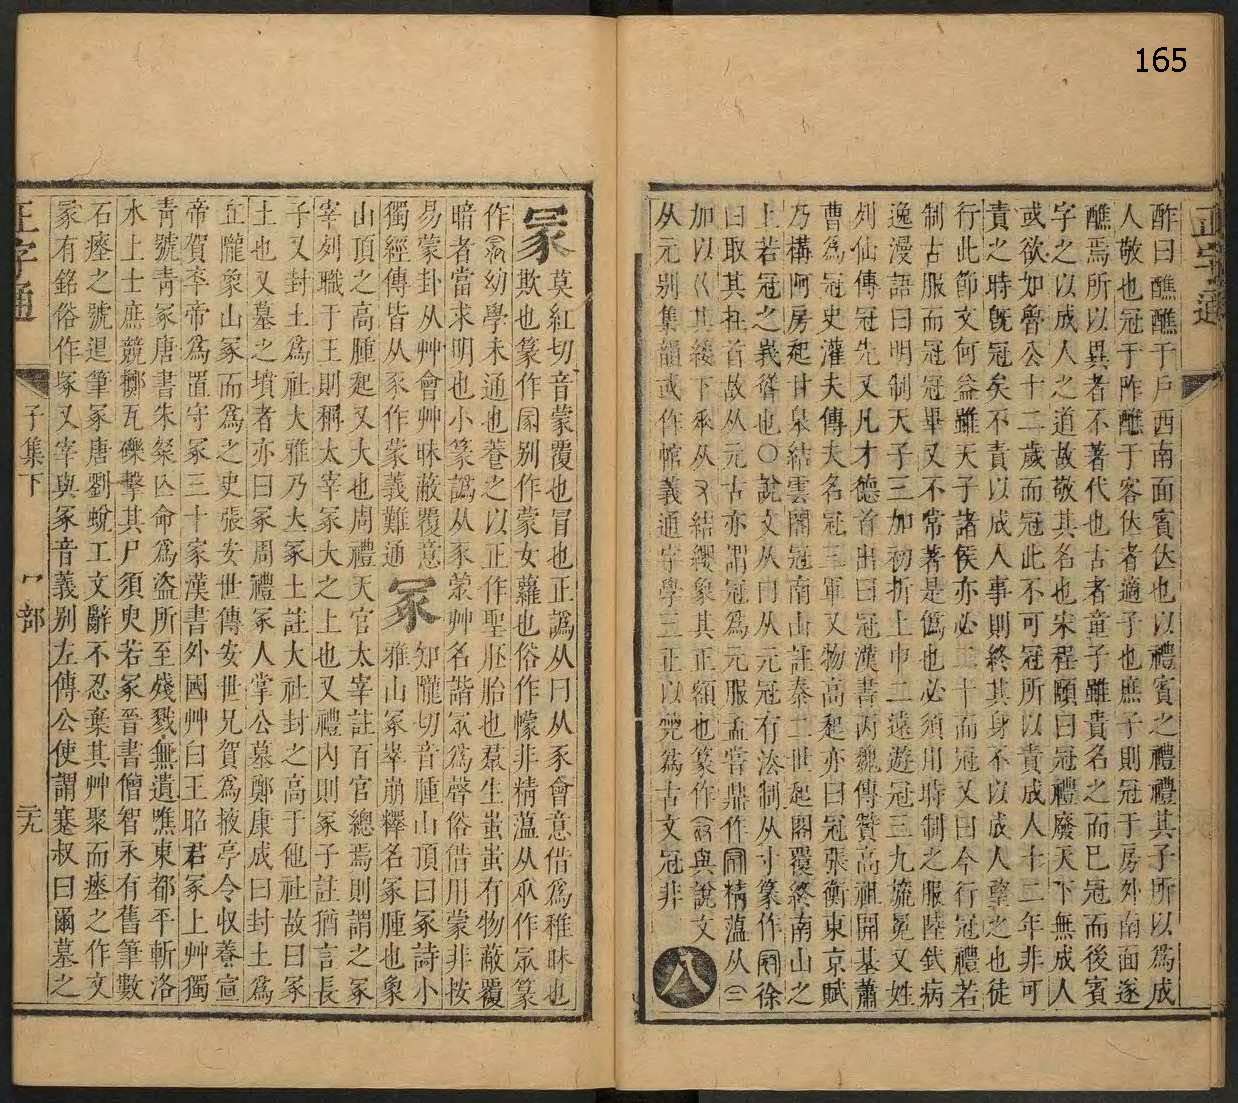 165
正字通
酢曰醮醮于戶西南面賓位也以禮賓之禮禮其子所以為成
人敬也冠于阼醮于客位者適子也庶子則冠于房外南面遂
醮焉所以異者不著代也古者童子雖貴名之而已冠而後賓
字之以成人之道故敬其名也宋程頤曰冠禮廢天下無成人
或欲如魯公十二歲而冠此不可冠所以責成人十二年非可
責之時旣冠矣不責以成人事則終其身不以成人望之也徒
行此節文何益雖天子諸侯亦必二十而冠又曰今行冠禮若
制古服而冠冠畢又不常著是僞也必須用時制之服陸釴病
逸漫語曰明制天子三加初折上巾二遠遊冠三九旒冕又姓
列仙傳冠先又凡才德首出曰冠漢書兩龔傳贊高祖開基蕭
曹爲冠史灌夫傳夫名冠三軍又物高起亦曰冠張衡東京賦
乃構阿房起甘泉結雲閣冠南山註秦二世起閣覆終南山之
上若冠之峩聳也〇說文从冂从元冠有法制从寸篆作徐
曰取其在首故从元古亦謂冠爲元服孟嘗鼎作精薀从
加以巜其緌下乘从又結纓象其正額也篆作與說文
从元别集韻或作帴義通字學三正以𠒎爲古文冠非
八
冡
莫紅切音蒙覆也冒也正譌从冃从豕會意借爲稚昧也
欺也篆作别作蒙女蘿也俗作幪非精薀从乑作冡篆
作幼學未通也養之以正作聖胚胎也羣生蚩蚩有物蔽覆
暗者當求明也小篆譌从豕蒙艸名諧冡爲聲俗借用蒙非按
易蒙卦从艸會艸昧蔽覆意
獨經傳皆从豕作蒙義難通
冢
知隴切音腫山頂曰冢詩小
雅山冢崒崩釋名冢腫也象
山頂之高腫起又大也周禮天官太宰註百官總焉則謂之冢
宰列職于王則稱太宰冢大之上也又禮內則冢子註猶言長
子又封土爲社大雅乃立冢土註大社封之高于他社故曰冢
土也又墓之墳者亦曰冢周禮冢人掌公墓鄭康成曰封土爲
丘隴象山冢而爲之史張安世傳安世兄賀爲掖亭令収養宣
帝賀卒帝爲置守冢三十家漢書外國艸白王昭君冢上艸獨
青號青冢唐書朱粲亾命爲盜所至殘戮無遺噍東都平斬洛
水上士庶競擲瓦礫擊其尸須臾若冢晉書僧智永有舊筆數
石瘞之號退筆冢唐劉蛻工文辭不忍棄其艸聚而瘞之作文
冢有銘俗作塚又宰與冢音義别左傳公使謂蹇叔曰爾墓之
正字通
子集下
冖部
二九